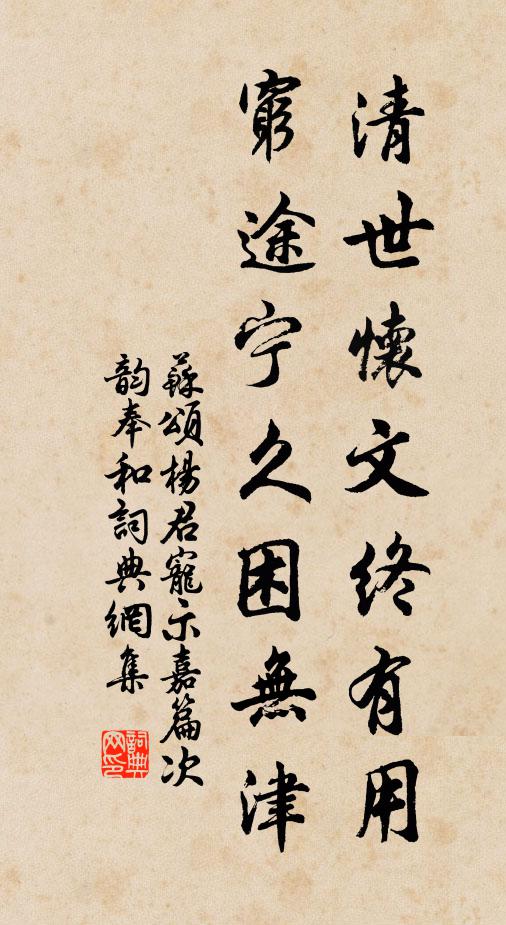 清世懷文終有用
窮途宁久困無津
蘇頌楊君寵示嘉篇次
韵奉和詞典網集
詞典
网印